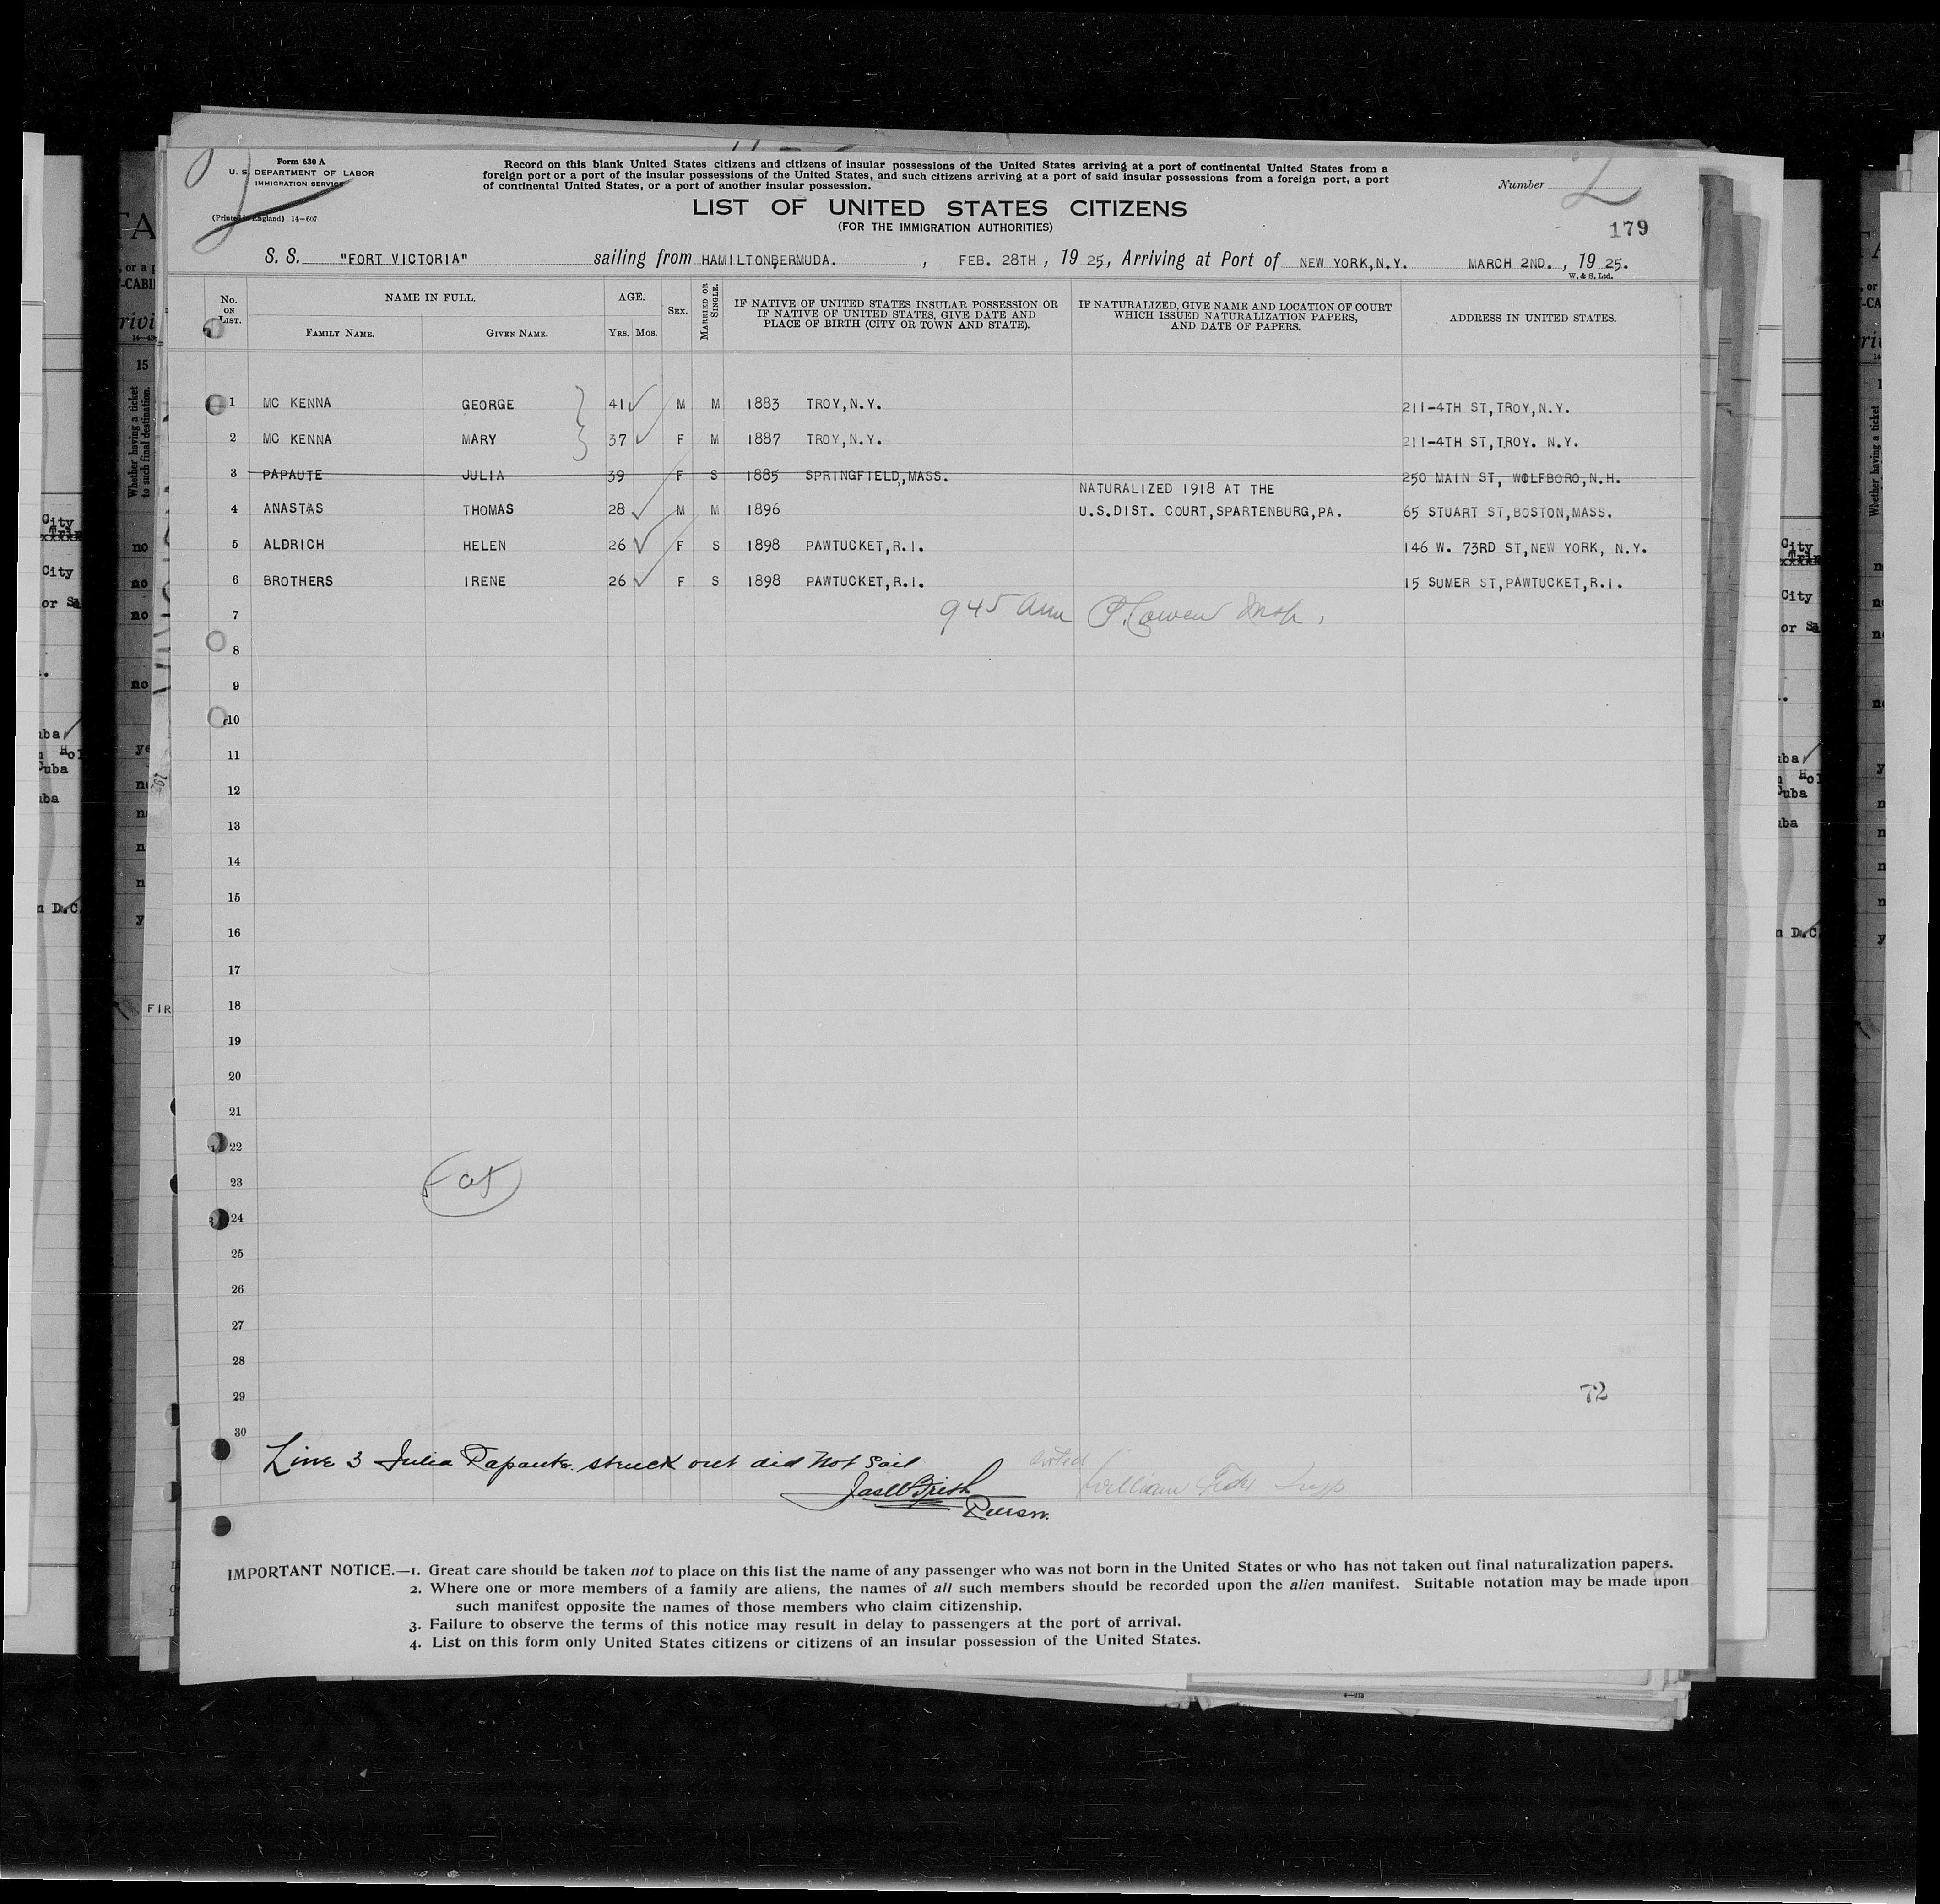 Form 630 A
U. S. DEPARTMENT OF LABOR
IMMIGRATION SERVICE
(Printed in England) 14-607
Record on this blank United States citizens and citizens of insular possessions of the United States arriving at a port of continental United States from a
foreign port or a port of the insular possessions of the United States, and such citizens arriving at a port of said insular possessions from a foreign port, a port
of continental United States, or a port of another insular possession.
Number 2
LIST OF UNITED STATES CITIZENS
(FOR THE IMMIGRATION AUTHORITIES)
179
S. S. "FORT VICTORIA" sailing from HAMILTON,BERMUDA. , FEB. 28TH , 19 25, Arriving at Port of NEW YORK,N.Y. MARCH 2ND. , 19 25.
W. & S. Ltd.
No. ON LIST. NAME IN FULL. AGE. SEX. MARRIED OR SINGLE. IF NATIVE OF UNITED STATES INSULAR POSSESSION OR IF NATIVE OF UNITED STATES, GIVE DATE AND PLACE OF BIRTH (CITY OR TOWN AND STATE). IF NATURALIZED, GIVE NAME AND LOCATION OF COURT WHICH ISSUED NATURALIZATION PAPERS, AND DATE OF PAPERS. ADDRESS IN UNITED STATES.
FAMILY NAME. GIVEN NAME. YRS. MOS.
1 MC KENNA GEORGE 41 M M 1883 TROY,N.Y. 211-4TH ST,TROY,N.Y.
2 MC KENNA MARY 37 F M 1887 TROY,N.Y. 211-4TH ST,TROY. N.Y.
3 PAPAUTE JULIA 39 F S 1885 SPRINGFIELD,MASS. 250 MAIN ST, WOLFBORO,N.H.
NATURALIZED 1918 AT THE
4 ANASTAS THOMAS 28 M M 1896 U.S.DIST. COURT,SPARTENBURG,PA. 65 STUART ST,BOSTON,MASS.
5 ALDRICH HELEN 26 F S 1898 PAWTUCKET,R.I. 146 W. 73RD ST,NEW YORK, N.Y.
6 BROTHERS IRENE 26 F S 1898 PAWTUCKET,R.I. 15 SUMER ST,PAWTUCKET,R.I.
7 945 am
8
9
10
11
12
13
14
15
16
17
18
19
20
21
22
23
24
25
26
27
28
29
72
30
Line 3 Julia Papaute struck out did not sail
William
IMPORTANT NOTICE.—1. Great care should be taken not to place on this list the name of any passenger who was not born in the United States or who has not taken out final naturalization papers.
2. Where one or more members of a family are aliens, the names of all such members should be recorded upon the alien manifest. Suitable notation may be made upon
such manifest opposite the names of those members who claim citizenship.
3. Failure to observe the terms of this notice may result in delay to passengers at the port of arrival.
4. List on this form only United States citizens or citizens of an insular possession of the United States.